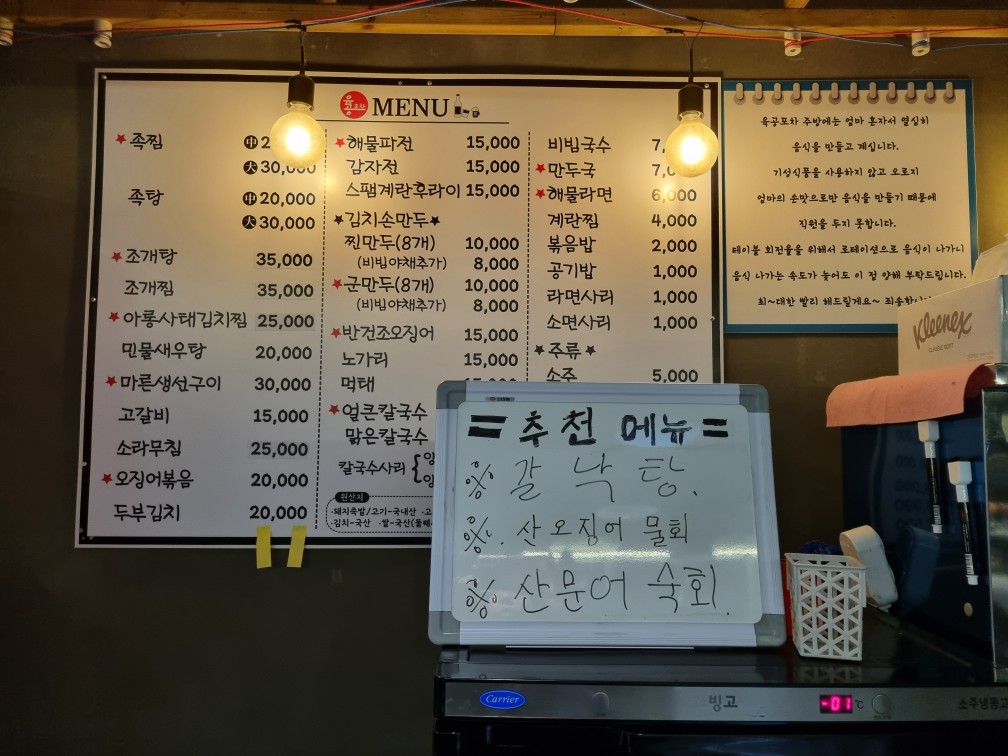 MENU
★족찜 中
大 30,000
족탕 中 20,000
大 30,000
★조개탕 35,000
조개찜 35,000
★아롱사태김치찜 25,000
민물새우탕 20,000
★마른생선구이 30,000
고갈비 15,000
소라무침 25,000
★오징어볶음 20,000
두부김치 20,000
★해물파전 15,000
감자전 15,000
스팸계란후라이 15,000
★김치손만두★
찐만두(8개) 10,000
(비빔야채추가) 8,000
★군만두(8개) 10,000
(비빔야채추가) 8,000
★반건조오징어 15,000
노가리 15,000
먹태
★얼큰칼국수
맑은칼국수
칼국수사리
원산지
·돼지족발/고기-국내산
·김치-국산 ·쌀-국산
비빔국수
★만두국
★해물라면 6,000
계란찜 4,000
볶음밥 2,000
공기밥 1,000
라면사리 1,000
소면사리 1,000
★주류★
소주 5,000
육공포차 주방에는 엄마 혼자서 열심히
음식을 만들고 계십니다.
기성식품을 사용하지 않고 오로지
엄마의 손맛으로만 음식을 만들기 때문에
직원을 두지 못합니다.
테이블 회전율을 위해서 로테이션으로 음식이 나가니
음식 나가는 속도가 늦어도 이 점 양해 부탁드립니다.
최~대한 빨리 해드릴게요~
Kleenex
CLASSIC SOFT
= 추천 메뉴 =
※ 갈낙탕.
※. 산오징어 물회
※ 산문어 숙회.
Carrier
빙고
-01 ℃
소주냉동고